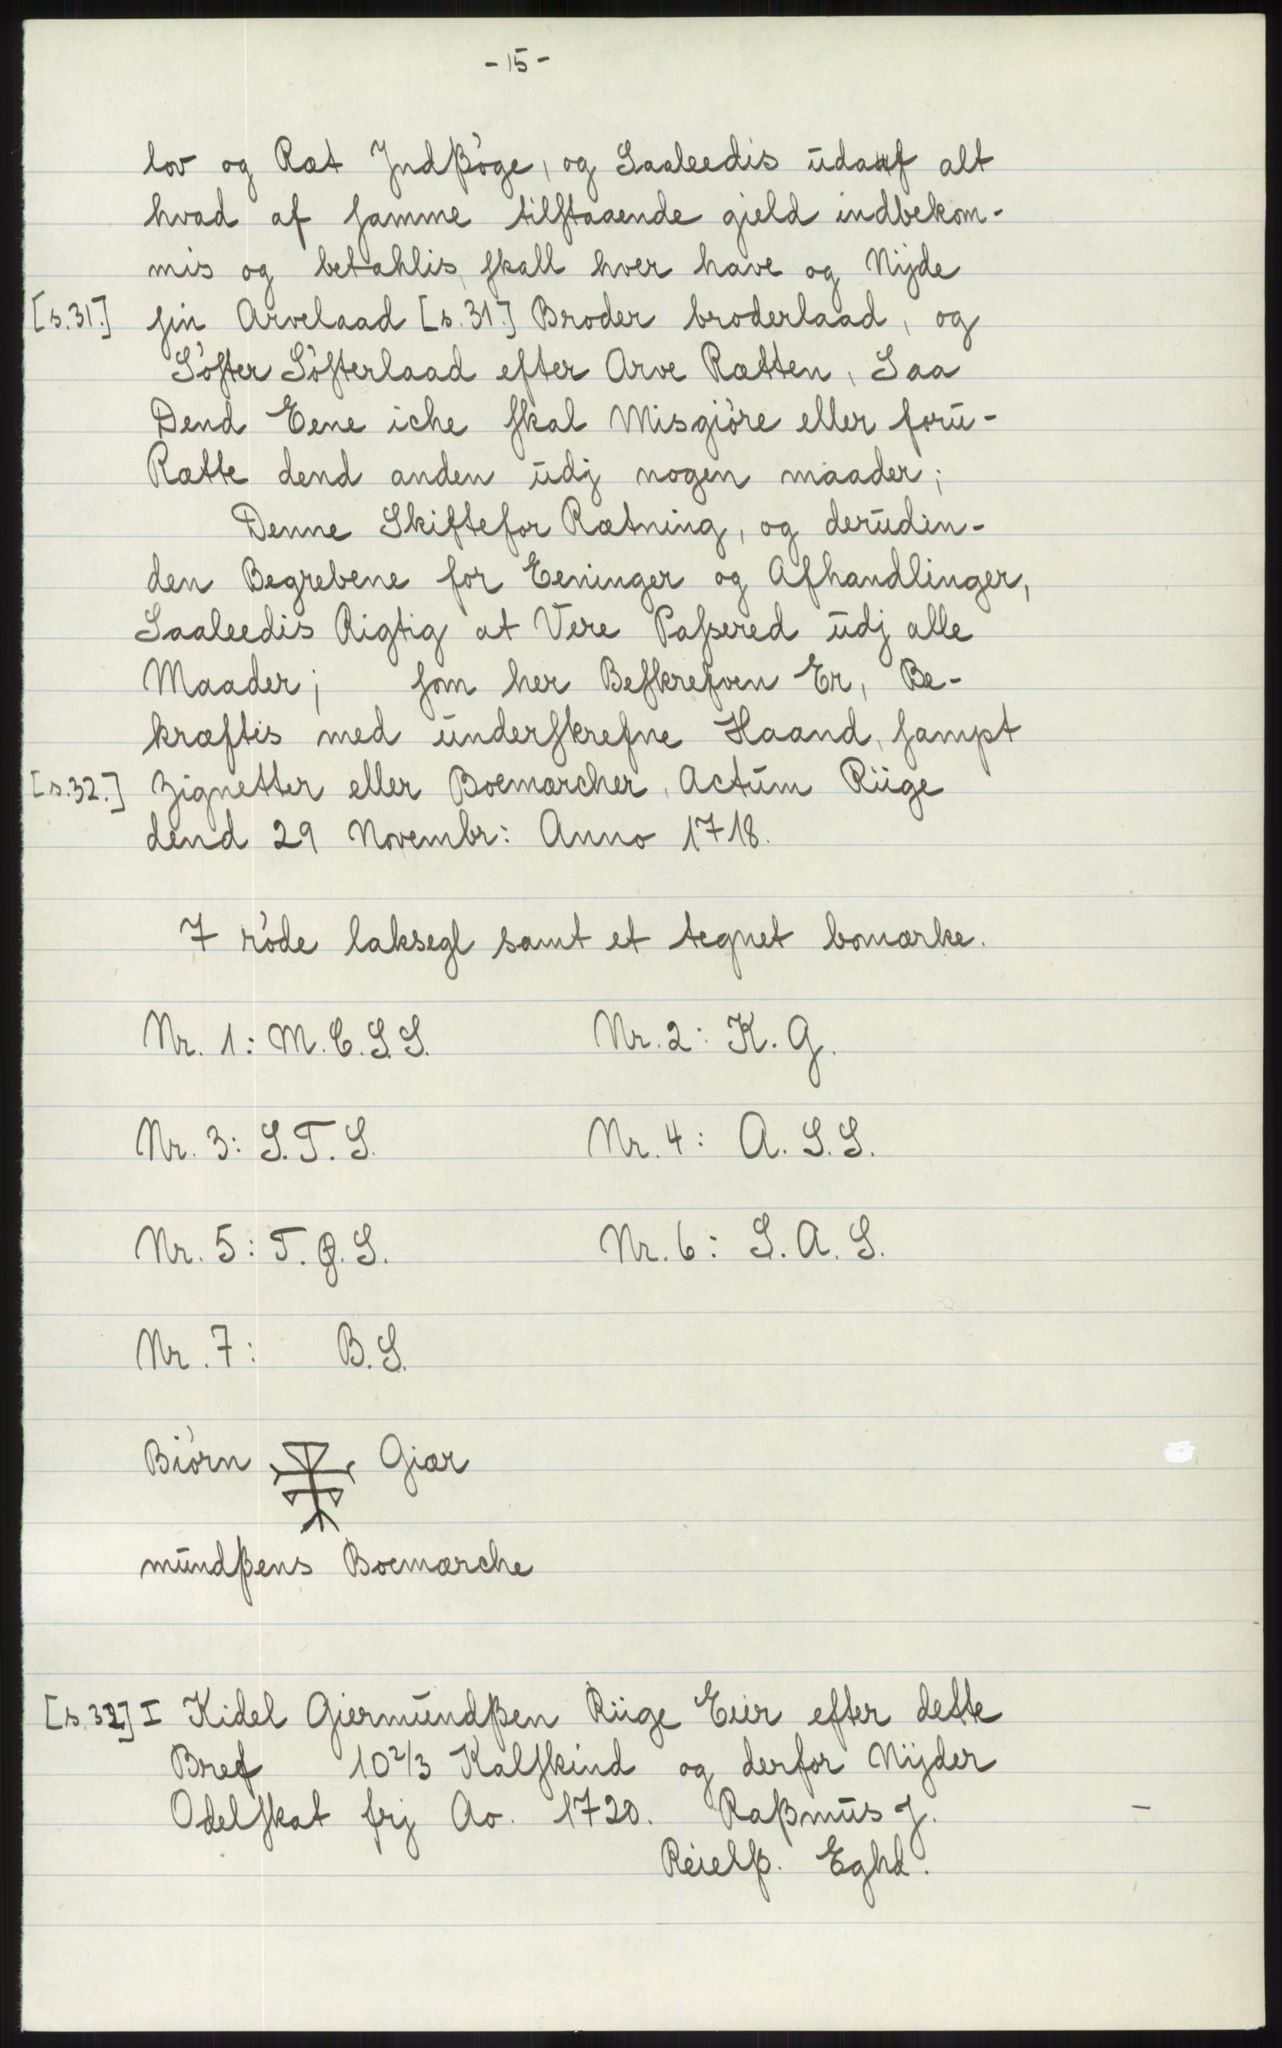 - 15 -
lov og Ræt Jndßøge, og Saaleedis udaf alt
hvad af samme tilstaaende gield indbekom-
mis og betahlis, skall hver have og Nÿde
[s.31.] sin Arvelaad [s.31.] Broder broderlaad, og
Søster Søsterlaad efter Arve Rætten, Saa
Dend Eene iche skal Misgiøre eller foru-
Rætte dend anden udj nogen maader;
Denne Skiftefor Rætning, og derudin-
den Begrebene for Eeninger og Afhandlinger,
Saaleedis Rigtig at Vere Passered udj alle
Maader; som her Beskrefven Er, Be-
kræftis med underskrefne Haand, sampt
[s.32.] Zignetter eller Boemærcher, Actum Riige
dend 29 Novembr: Anno 1718.
7 røde laksegl samt et tegnet bomærke.
Nr. 1: M.C.S.S. Nr. 2: K.G.
Nr. 3: S.T.S. Nr. 4: A.S.S.
Nr. 5: T.Ø.S. Nr. 6: S.A.S.
Nr. 7: B.S.
Biørn Giær
mundßens Boemærche
[s.32] I Kidel Giermundßen Riige Eier efter dette
Bref 10 2/3 Kalfskind og derfor Nÿder
Odelskat frj Ao. 1720. Raßmus J.
Reielß. Eghd.